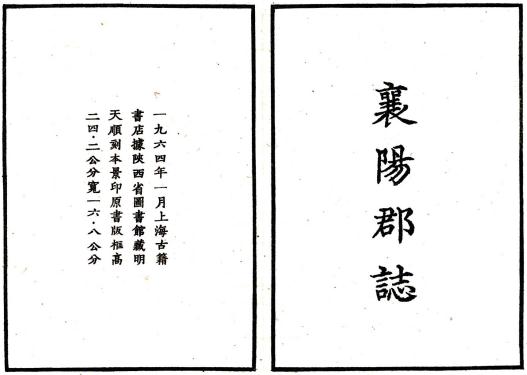 襄陽郡誌
一九六四年一月上海古籍
書店據陝西省圖書館藏明
天順刻本景印原書版框高
二四·二公分寬一六·八公分